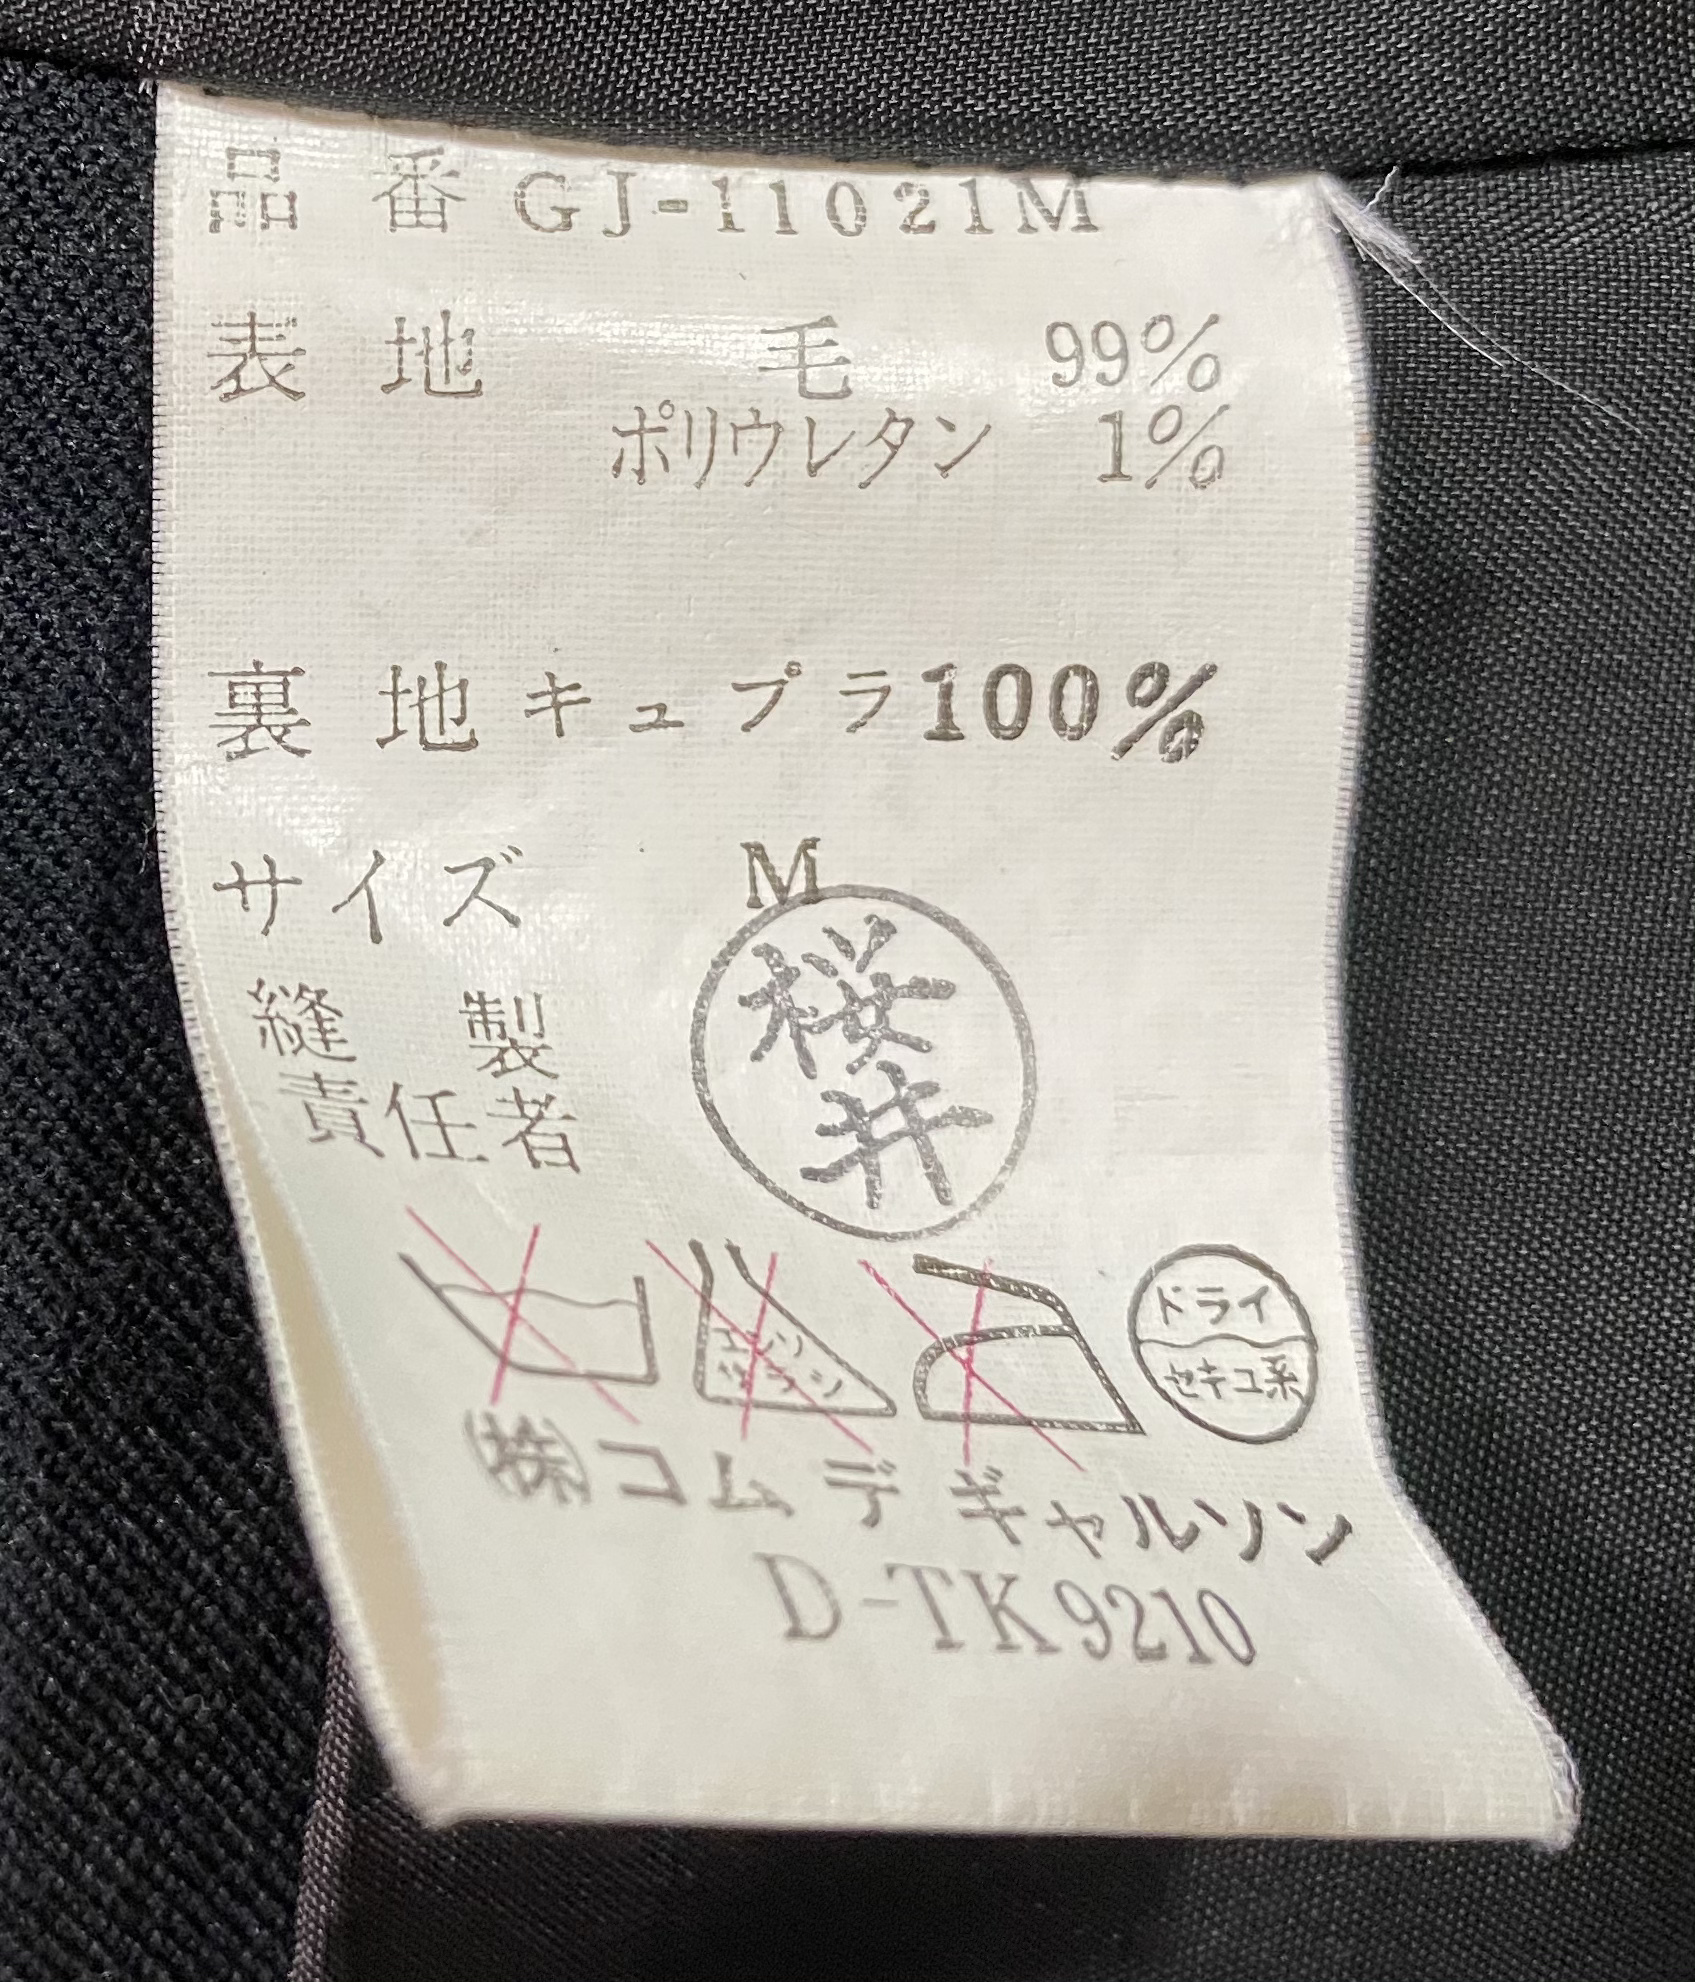 品番 GJ-11021M
表地 毛 99%
ポリウレタン 1%
裏地 キュプラ 100%
サイズ M
縫製
責任者
桜井
エンソ
サラシ
ドライ
セキユ系
㈱コム デ ギャルソン
D-TK9210